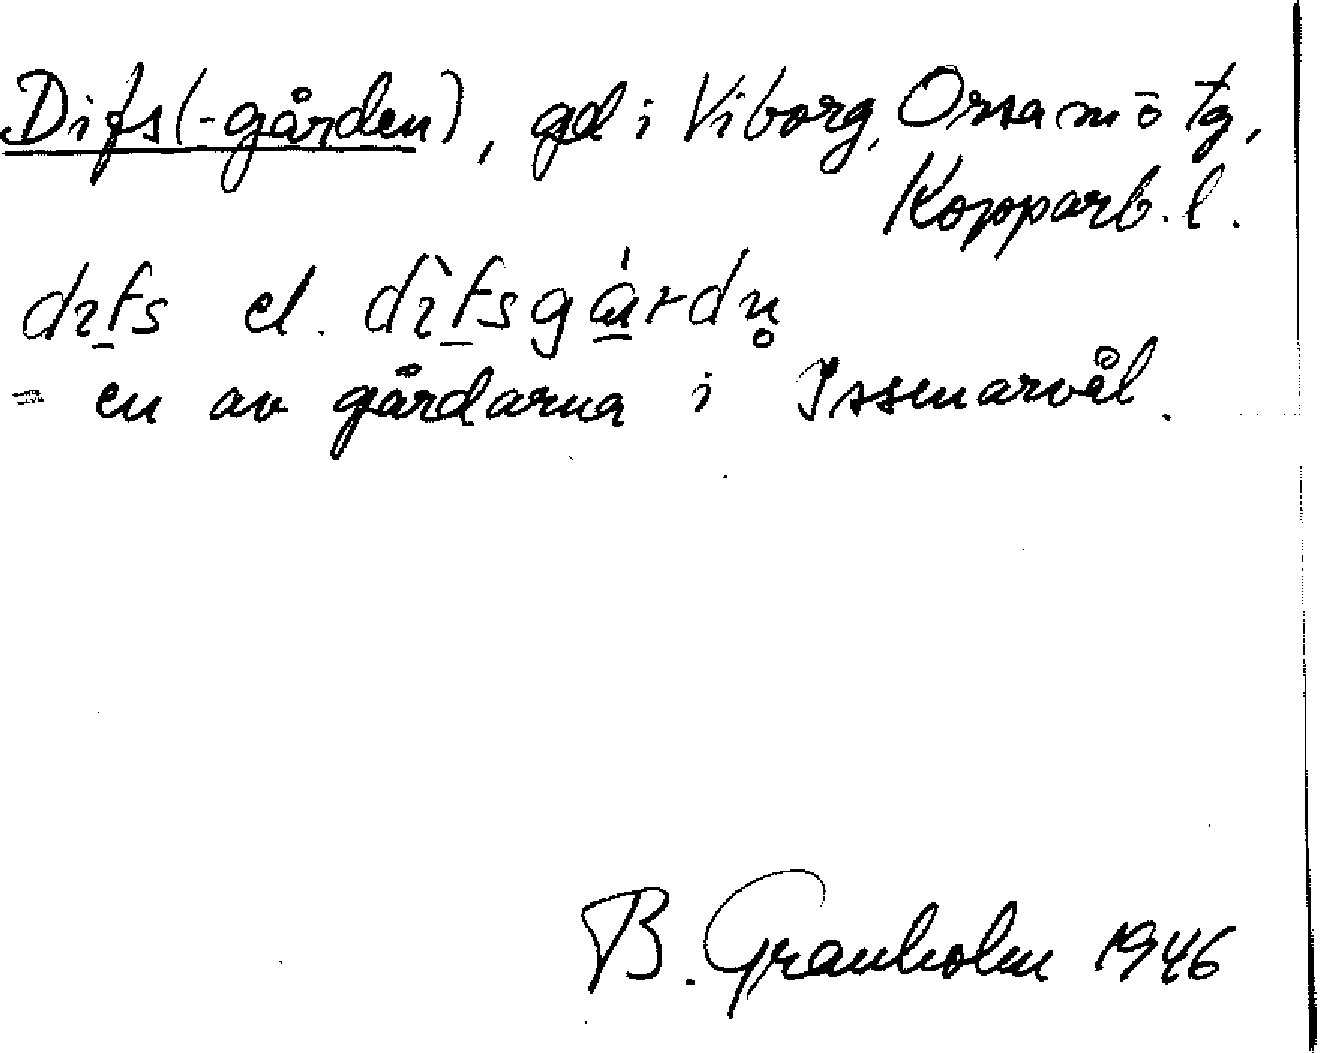 Difs(-gården), gd i Viborg, Orsa sn ö tg,
Kopparb. l.
dɪfs el. dɪ̀fsgɑ́rdn̥
= en av gårdarna i Issenarvål.
B. Granholm 1946